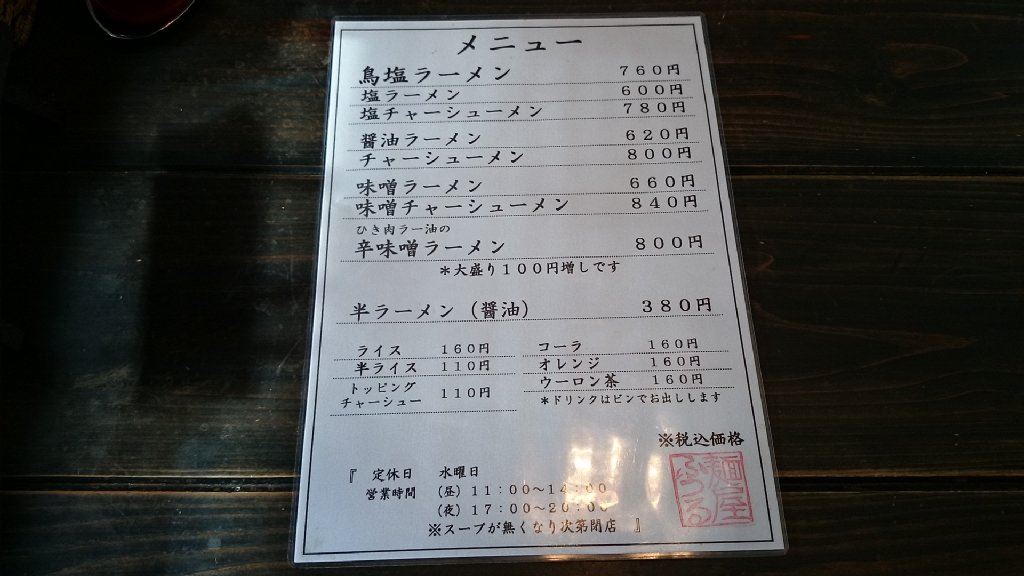 メニュー
鳥塩ラーメン 760円
塩ラーメン 600円
塩チャーシューメン 780円
醤油ラーメン 620円
チャーシューメン 800円
味噌ラーメン 660円
味噌チャーシューメン 840円
ひき肉ラー油の
辛味噌ラーメン 800円
＊大盛り100円増しです
半ラーメン（醤油） 380円
ライス 160円
半ライス 110円
トッピング
チャーシュー 110円
コーラ 160円
オレンジ 160円
ウーロン茶 160円
＊ドリンクはビンでお出しします
※税込価格
『 定休日 水曜日
営業時間 （昼）11：00〜14：00
（夜）17：00〜20：00
※スープが無くなり次第閉店 』
麺屋